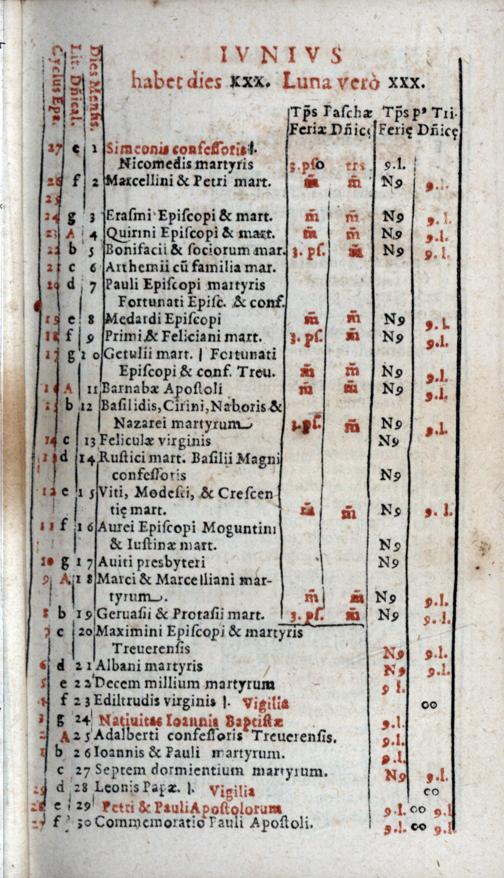 IVNIVS
habet dies XXX. Luna verò XXX.
Cyclus Epa.
Lit. Dñical.
Dies Mensis.
Tp̄s Paschæ Tp̄s pꝰ Tri.
Feriæ Dñicę Ferię Dñicę
27 e 1 Simeonis confessoris ſ.
Nicomedis martyris 9.l.
26 f 2 Marcellini & Petri mart. m̄ m̄ N9 9.l.
25
24 g 3 Erasmi Episcopi & mart. m̄ m̄ N9 9.l.
23 A 4 Quirini Episcopi & mart. m̄ m̄ N9 9.l.
22 b 5 Bonifacii & sociorum mar. 3. ps. m̄ N9 9.l.
21 c 6 Arthemii cū familia mar.
20 d 7 Pauli Episcopi martyris
Fortunati Episc. & conf.
19 e 8 Medardi Episcopi m̄ m̄ N9 9.l.
18 f 9 Primi & Feliciani mart. 3. ps. m̄ N9 9.l.
17 g 10 Getulii mart. ſ Fortunati
Episcopi & conf. Treu. m̄ m̄ N9 9.l.
16 A 11 Barnabæ Apostoli m̄ m̄ N9 9.l.
15 b 12 Basilidis, Cirini, Naboris &
Nazarei martyrum 3. ps. m̄ N9 9.l.
14 c 13 Feliculæ virginis N9
13 d 14 Rustici mart. Basilii Magni
confessoris N9
12 e 15 Viti, Modesti, & Crescen
tię mart. m̄ m̄ N9 9.l.
11 f 16 Aurei Episcopi Moguntini
& Iustinæ mart. N9
10 g 17 Auiti presbyteri N9
9 A 18 Marci & Marcelliani mar-
tyrum. m̄ m̄ N9 9.l.
8 b 19 Geruasii & Protasii mart. 3. ps. m̄ N9 9.l.
7 c 20 Maximini Episcopi & martyris
Treuerensis N9 9.l.
6 d 21 Albani martyris N9 9.l.
5 e 22 Decem millium martyrum 9 l.
f 23 Ediltrudis virginis ſ. Vigilia ∞
3 g 24 Natiuitas Ioannis Baptistæ 9.l.
2 A 25 Adalberti confessoris Treuerensis. 9.l.
1 b 26 Ioannis & Pauli martyrum. 9.l.
c 27 Septem dormientium martyrum. N9 9.l.
29 d 28 Leonis Papæ. ſ. Vigilia ∞
28 e 29 Petri & Pauli Apostolorum 9.l. ∞ 9.l.
27 f 30 Commemoratio Pauli Apostoli. 9.l. ∞ 9.l.